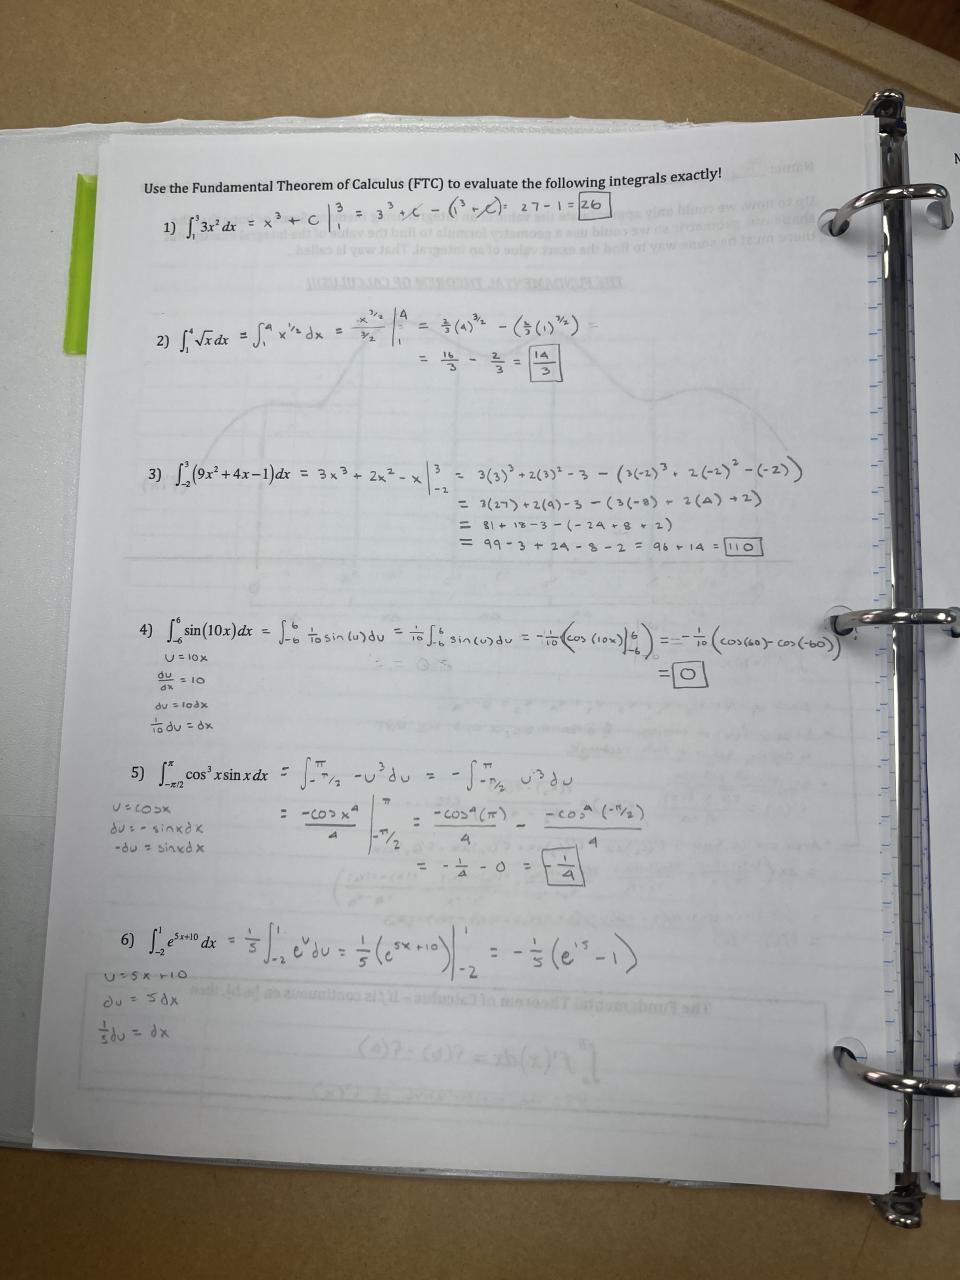 Use the Fundamental Theorem of Calculus (FTC) to evaluate the following integrals exactly!
1) ∫₁³ 3x² dx = x³ + C |₁³ = 3³ + C − (1³ + C) = 27 − 1 = 26
2) ∫₁⁴ √x dx = ∫₁⁴ x^(1/2) dx = x^(3/2) / (3/2) |₁⁴ = 2/3 (4)^(3/2) − (2/3 (1)^(3/2)) =
= 16/3 − 2/3 = 14/3
3) ∫₋₂³ (9x² + 4x − 1) dx = 3x³ + 2x² − x |₋₂³ = 3(3)³ + 2(3)² − 3 − (3(−2)³ + 2(−2)² − (−2))
= 3(27) + 2(9) − 3 − (3(−8) + 2(4) + 2)
= 81 + 18 − 3 − (−24 + 8 + 2)
= 99 − 3 + 24 − 8 − 2 = 96 + 14 = 110
4) ∫₋₆⁶ sin(10x) dx = ∫₋₆⁶ 1/10 sin(u) du = 1/10 ∫₋₆⁶ sin(u) du = −1/10 (cos(10x) |₋₆⁶) = −1/10 (cos(60) − cos(−60))
u = 10x
= 0
du/dx = 10
du = 10dx
1/10 du = dx
5) ∫_(−π/2)^π cos³ x sin x dx = ∫_(−π/2)^π −u³ du = − ∫_(−π/2)^π u³ du
u = cosx
= −cosx⁴ / 4 |_(−π/2)^π = −cos⁴(π) / 4 − −cos⁴(−π/2) / 4
du = − sinxdx
−du = sinxdx
= −1/4 − 0 = −1/4
6) ∫₋₂¹ e^(5x+10) dx = 1/5 ∫₋₂¹ e^u du = 1/5 (e^(5x+10)) |₋₂¹ = −1/5 (e^15 − 1)
u = 5x + 10
du = 5dx
1/5 du = dx